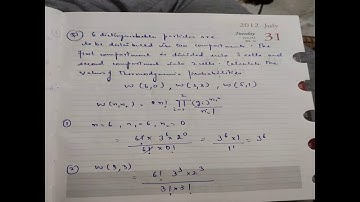 2012 July
Tuesday
31
Q) 6 distinguishable particles are
to be distributed in two compartments. The
first compartment is divided into 3 cells and
second compartment into 2 cells. Calculate the
value of Thermodynamic probabilities.
W(6,0), W(3,3), W(5,1)
W(n₁n₂) = n! ∏ (gi)^ni / ni!
① n=6, n₁=6, n₂=0
= 6! × 3^6 × 2^0 / 6! × 0! = 3^6 × 1 / 1! = 3^6
② W(3,3)
= 6! 3^3 × 2^3 / 3! × 3!